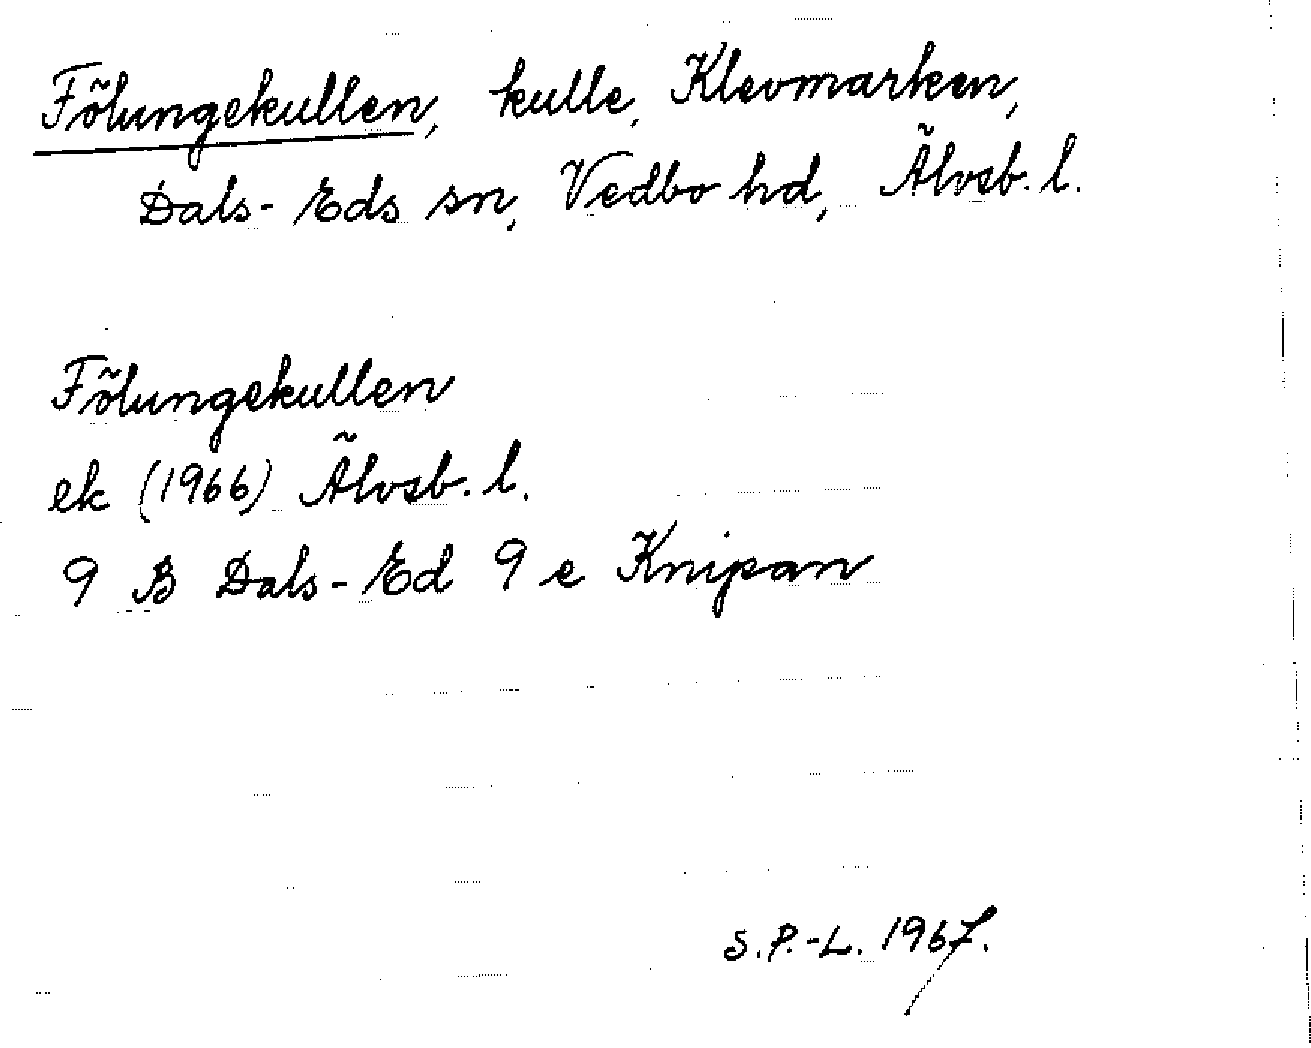 Fölungekullen, kulle, Klevmarken,
Dals-Eds sn, Vedbo hd, Älvsb. l.
Fölungekullen
ek (1966) Älvsb. l.
9 B Dals-Ed 9 e Knipan
S. P.-L. 1967.